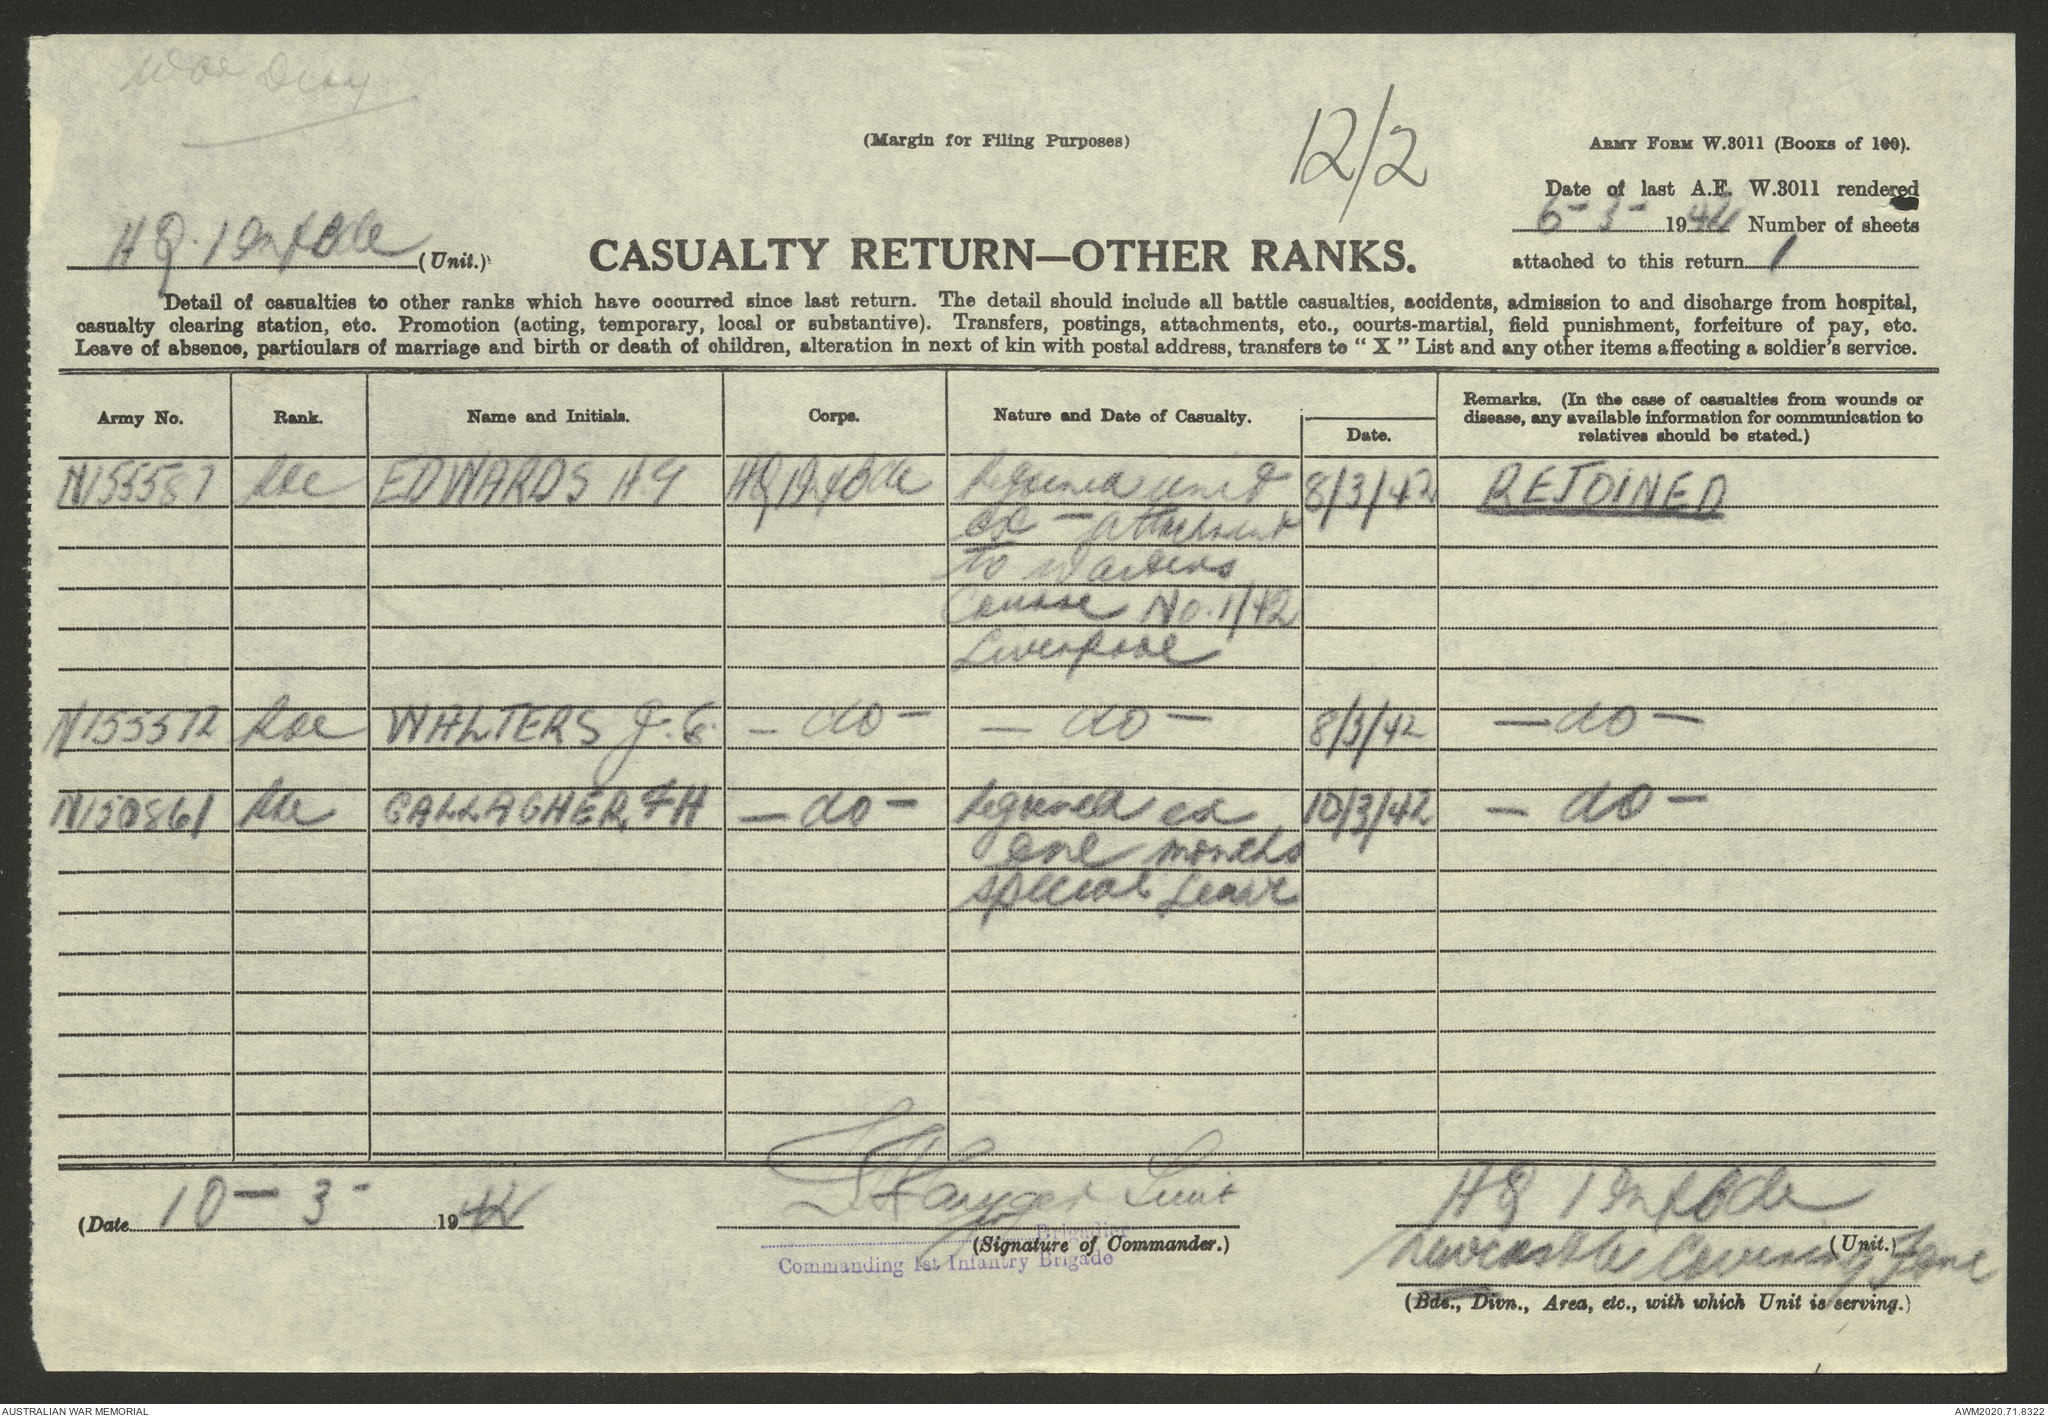 War Diary
(Margin for Filing Purposes)
12/2
ARMY FORM W.3011 (BOOKS OF 100).
Date of last A.F. W.3011 rendered
6-3-1942 Number of sheets
attached to this return 1
HQ. 1 Inf Bde (Unit.)
CASUALTY RETURN—OTHER RANKS.
Detail of casualties to other ranks which have occurred since last return. The detail should include all battle casualties, accidents, admission to and discharge from hospital,
casualty clearing station, etc. Promotion (acting, temporary, local or substantive). Transfers, postings, attachments, etc., courts-martial, field punishment, forfeiture of pay, etc.
Leave of absence, particulars of marriage and birth or death of children, alteration in next of kin with postal address, transfers to "X" List and any other items affecting a soldier's service.
Army No. Rank. Name and Initials. Corps. Nature and Date of Casualty. Date. Remarks. (In the case of casualties from wounds or
disease, any available information for communication to
relatives should be stated.)
N155587 Pte EDWARDS H.G HQ 1 Inf Bde Rejoined unit 8/3/42 REJOINED
ex - attachment
to Wardens
Course No. 1/42
Liverpool
N155572 Pte WALTERS J.G. - do - - do - 8/3/42 - do -
N150861 Pte GALLAGHER, F H - do - Rejoined ex 10/3/42 - do -
one months
special leave
(Date 10 - 3 - 1942
Lieut
Brigadier
(Signature of Commander.)
Commanding 1st Infantry Brigade
HQ 1 Inf Bde
(Unit.)
Newcastle Covering Force
(Bde., Divn., Area, etc., with which Unit is serving.)
AUSTRALIAN WAR MEMORIAL
AWM2020.71.8322